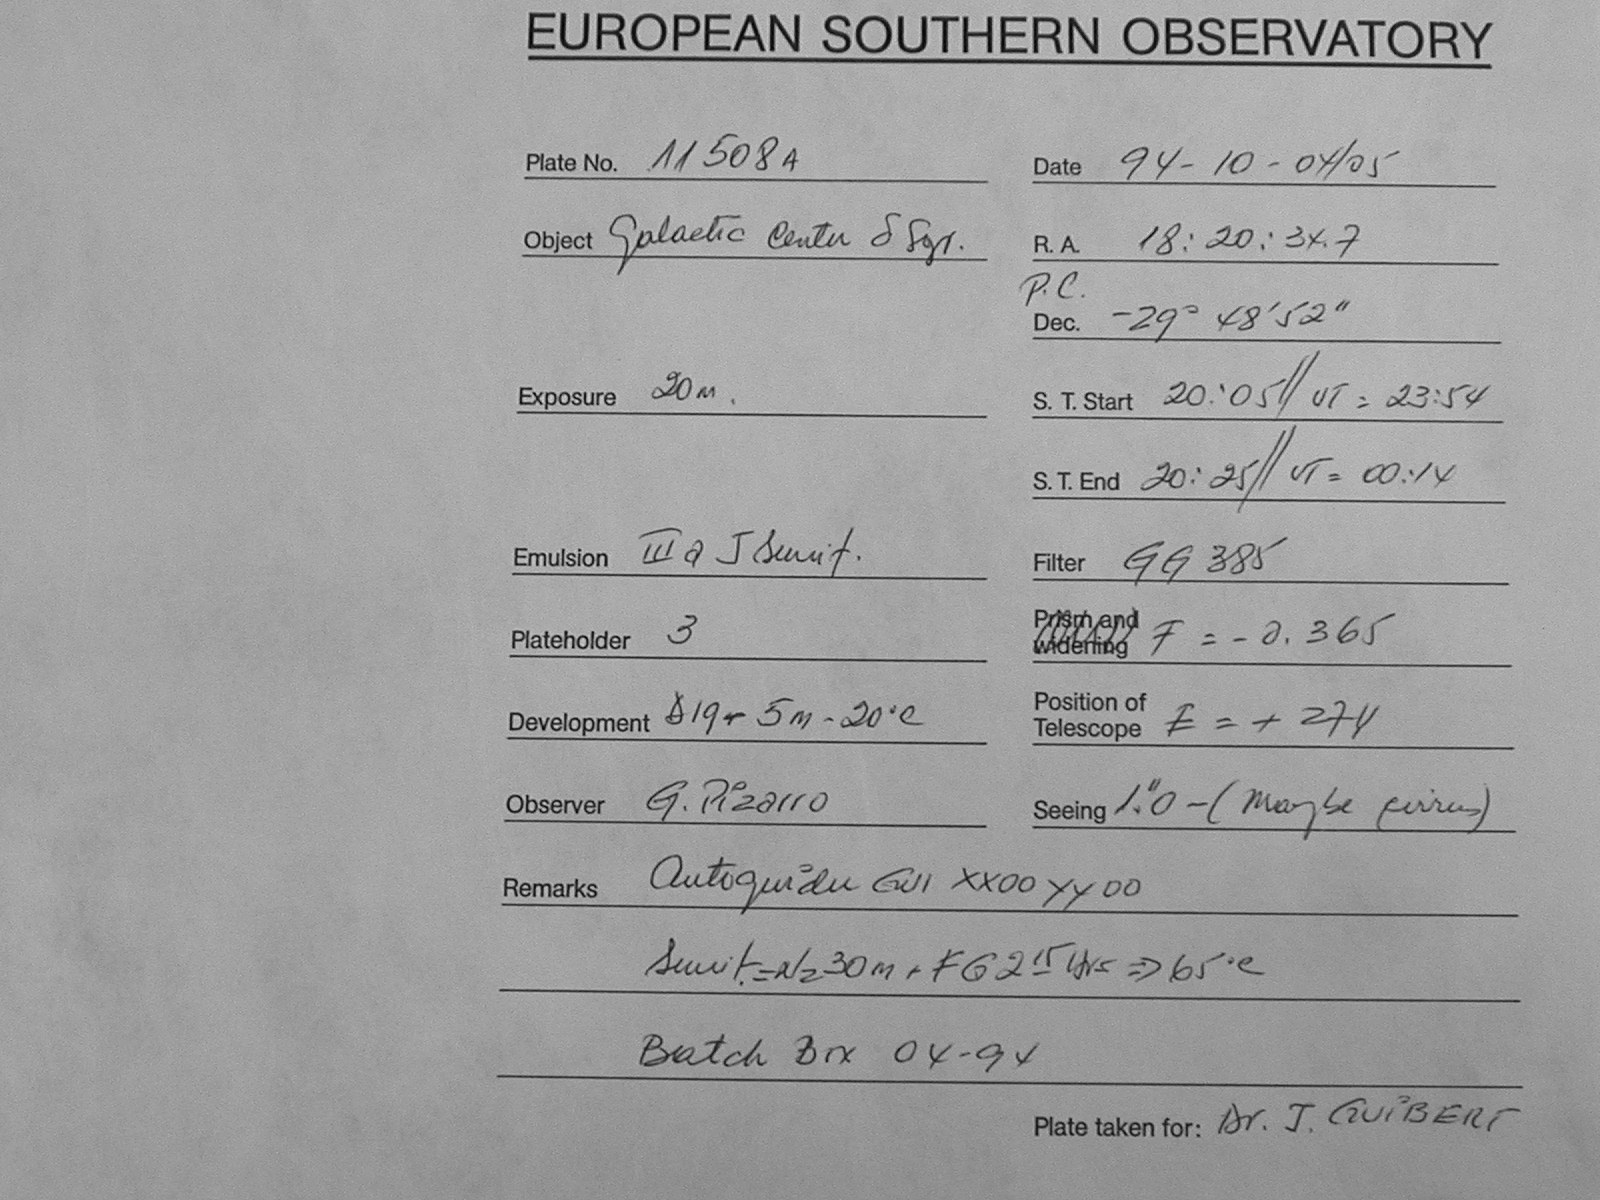 EUROPEAN SOUTHERN OBSERVATORY
Plate No. 11508A
Date 94-10-04/05
Object Galactic Center δ Sgr.
R. A. 18:20:34.7
P.C.
Dec. -29° 48'52"
Exposure 20m.
S. T. Start 20:05 // UT = 23:54
S. T. End 20:25 // UT = 00:14
Emulsion III a J Sensit.
Filter GG 385
Plateholder 3
Prism and widening F = -0.365
Development D19- 5m-20°C
Position of Telescope E = + 274
Observer G. Pizarro
Seeing 1."0 - (Maybe cirrus)
Remarks Autoguider GII XX00 YY00
Sensit.=N2 30m + FG2 15 Hrs => 65°C
Batch Box 04-94
Plate taken for: Dr. J. GUIBERT